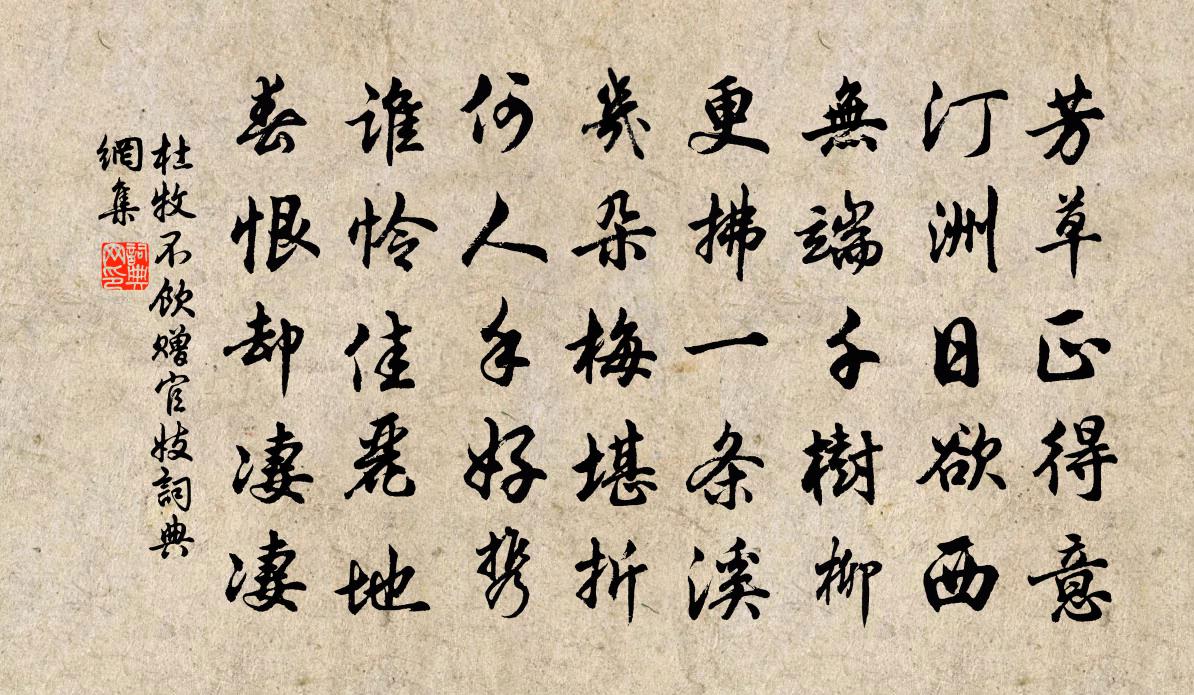 芳草正得意
汀洲日欲西
無端千樹柳
更拂一条溪
幾朵梅堪折
何人手好携
誰怜佳麗地
春恨却淒淒
杜牧不飲赠官妓詞典
網集
詞典
网印